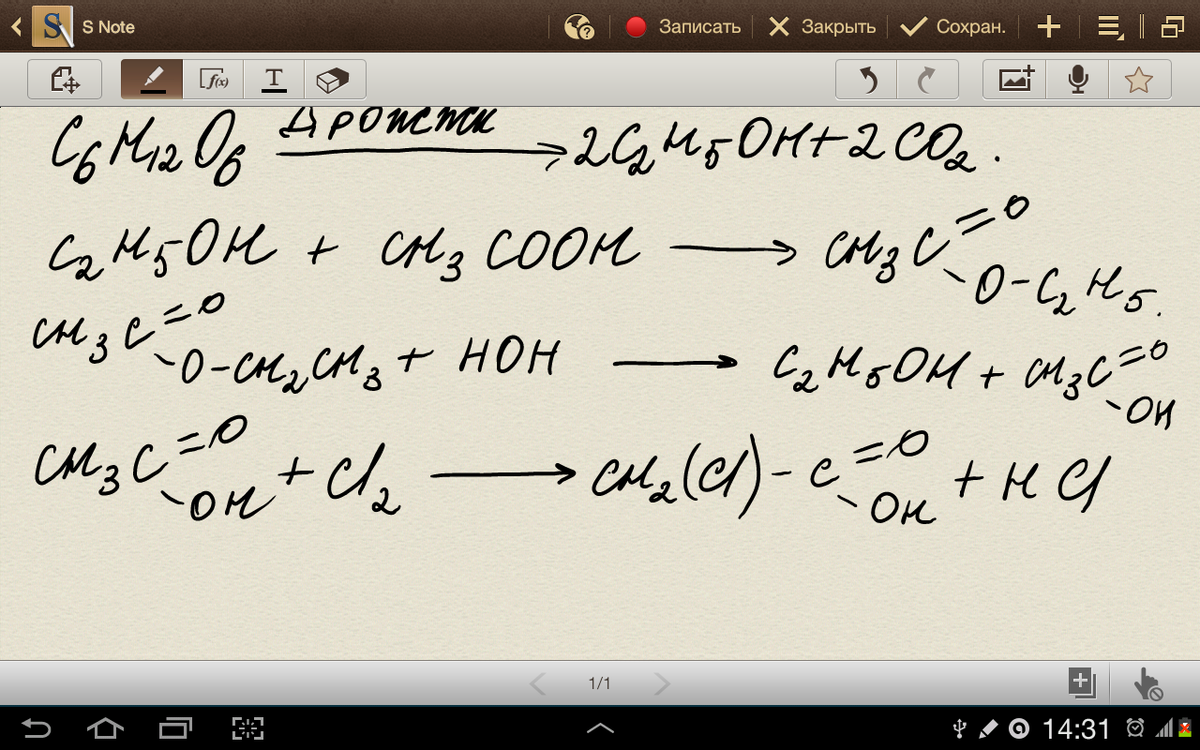 S Note Записать Закрыть Сохран.
f(x) T
C₆H₁₂O₆ дрожжи → 2C₂H₅OH + 2CO₂.
C₂H₅OH + CH₃COOH → CH₃C=O -O-C₂H₅.
CH₃C=O -O-CH₂CH₃ + HOH → C₂H₅OH + CH₃C=O -OH
CH₃C=O -OH + Cl₂ → CH₂(Cl)-C=O -OH + HCl
1/1
14:31